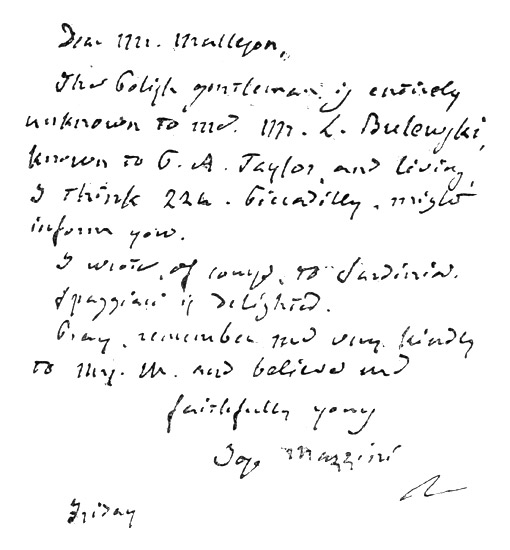 Dear Mr. Malleson,
The Polish gentleman is entirely
unknown to me. Mr. L. Bulewski,
known to P. A. Taylor, and living,
I think 22a. Piccadilly, might
inform you.
I wrote, of course, to Sardinia.
Spaggiari is delighted.
Pray, remember me very kindly
to Mrs. M. and believe me
faithfully yours
Jos. Mazzini
Friday